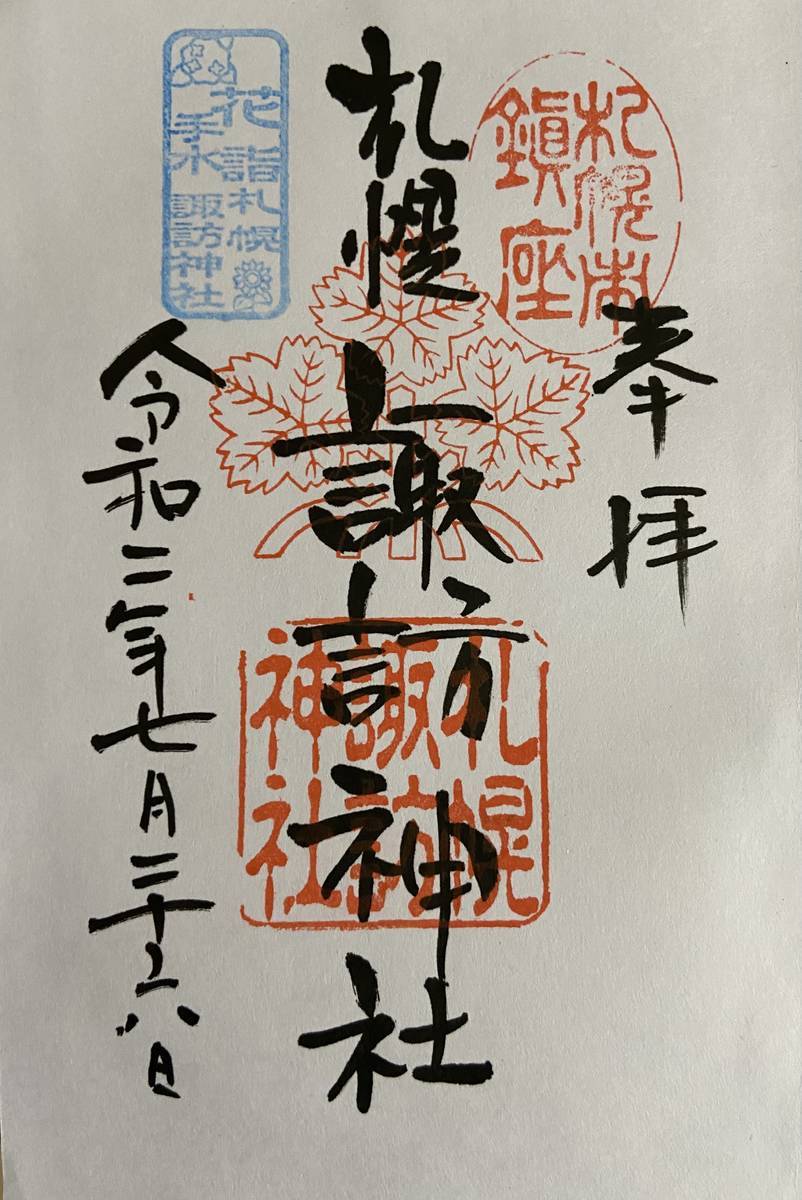 札幌市
鎮座
奉拝
札幌諏訪神社
札幌
諏訪
神社
花詣札幌
手水 諏訪神社
令和二年七月二十六日